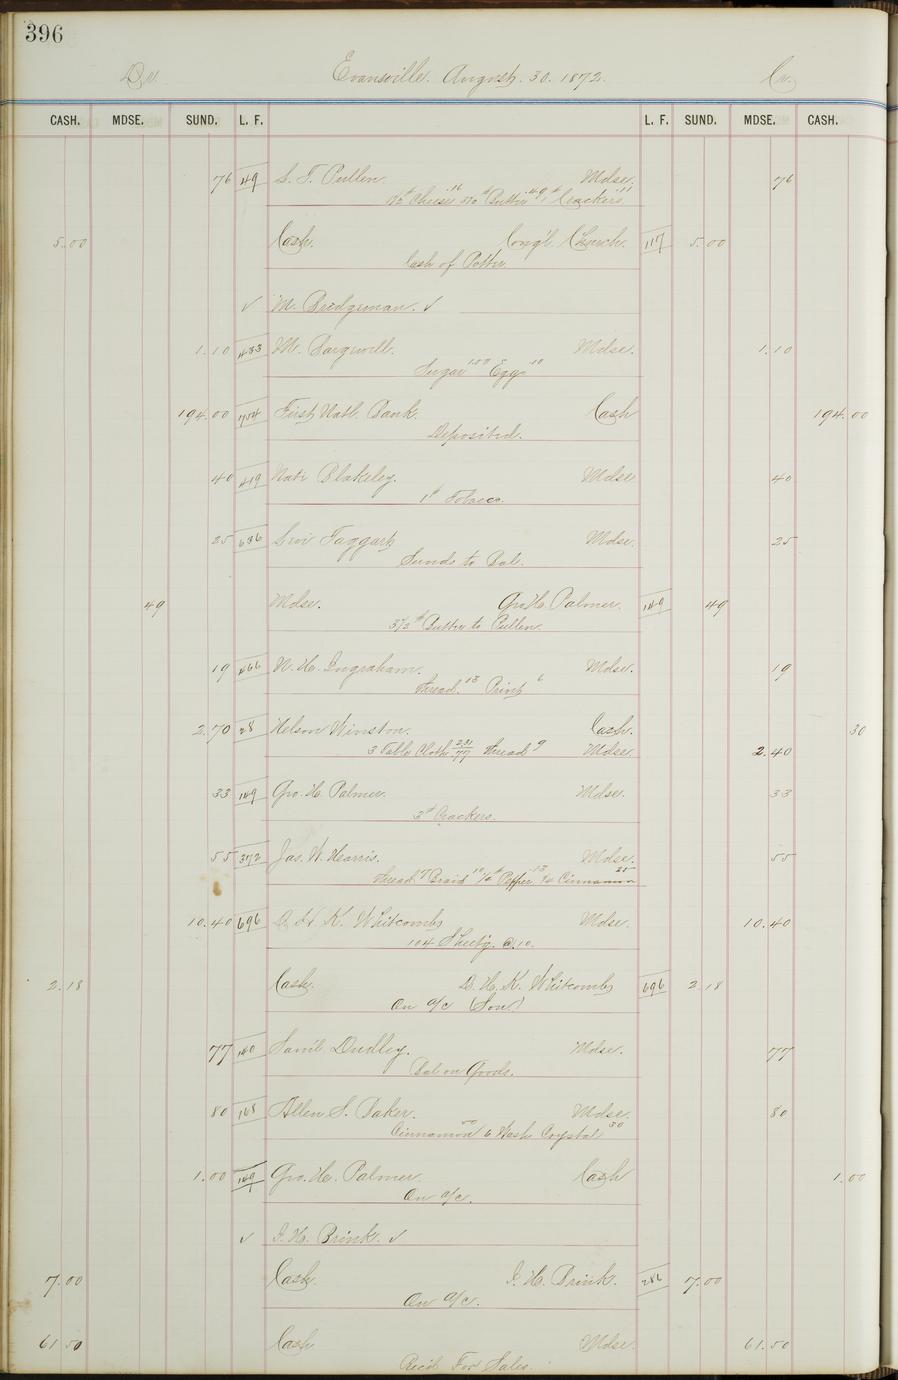 396
Dr. Evansville. August. 30. 1872. Cr.
CASH. MDSE. SUND. L. F. L. F. SUND. MDSE. CASH.
76 49 S. T. Pullen. Mdse. 76
Cheese .16 Butter .49 1# Crackers .11
5.00 Cash. Cong'l. Church. 117 5.00
Cash of Potter.
✓ M. Bridgeman. ✓
1.10 433 Mr. Mdse. 1.10
Sugar 1.00 Eggs .10
194.00 704 First Natl. Bank. Cash 194.00
Deposited.
40 419 Nate Blakeley. Mdse 40
1# Tobacco.
25 636 Levi Taggart Mdse. 25
Sunds to Bal.
49 Mdse. Geo. H. Palmer. 149 49
3 1/2# Butter to Pullen.
19 466 N. H. Ingraham. Mdse. 19
Thread. 13 Print 6
2.70 28 Nelson Winston. Cash. 30
3 Table Cloth 231/77 Thread 9 Mdse 2.40
33 149 Geo. H. Palmer. Mdse. 33
3# Crackers.
55 372 Jas. W. Harris. Mdse. 55
Thread 7 Braid 10 Pepper 13 Cinnamon 25
10.40 696 D. H. K. Whitcomb Mdse. 10.40
104 Sheet'g. @ 10.
2.18 Cash. D. H. K. Whitcomb 696 2.18
On a/c (Son)
77 140 Sam'l Dudley. Mdse. 77
Bal on Goods.
80 168 Allen S. Baker. Mdse. 80
Cinnamon 50 6 Wash Crystal 30
1.00 149 Geo. H. Palmer Cash 1.00
On a/c.
✓ I. H. Brink. ✓
7.00 Cash I. H. Brink. 286 7.00
On a/c.
61.50 Cash Mdse. 61.50
Rec'd For Sales.